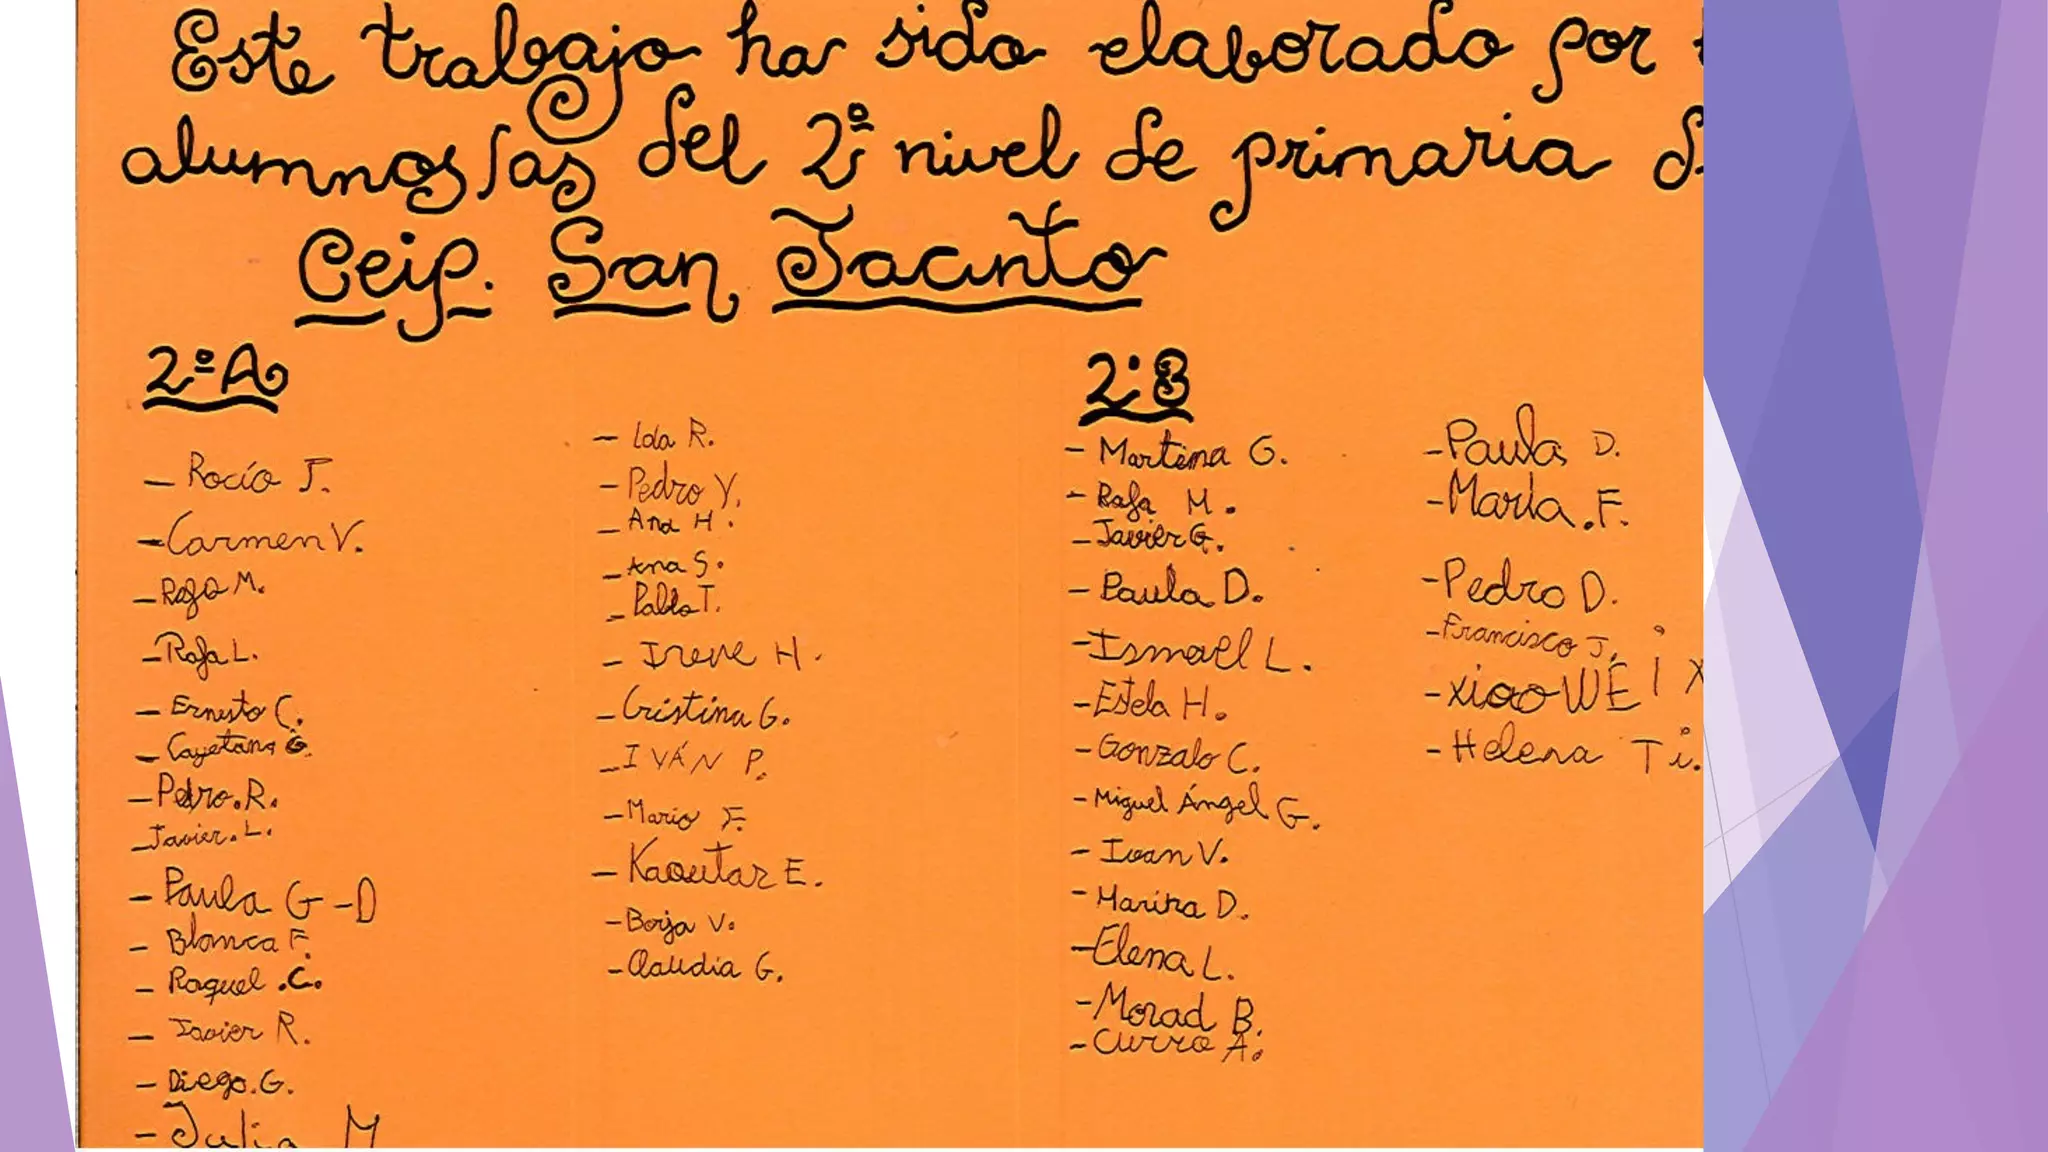 Este trabajo ha sido elaborado por
alumnos/as del 2º nivel de primaria
Ceip. San Jacinto
2ºA
- Rocío J.
- Carmen V.
- Rafa M.
- Rafa L.
- Ernesto C.
- Cayetana G.
- Pedro.R.
- Javier.L.
- Paula G-D
- Blanca F.
- Raquel .C.
- Javier R.
- Diego.G.
- Julia M
- Lola R.
- Pedro Y.
- Ana H.
- Ana S.
- Pablo T.
- Irene H.
- Cristina G.
- IVÁN P.
- Mario F.
- Kaoutar E.
- Borja V.
- Claudia G.
2ºB
- Martina G.
- Rafa M.
- Javier G.
- Paula D.
- Ismael L.
- Estela H.
- Gonzalo C.
- Miguel Ángel G.
- Ivan V.
- Marina D.
- Elena L.
- Morad B.
- Curro A.
- Paula D.
- María.F.
- Pedro D.
- Francisco J.
- xiao WEI X
- Helena Ti.